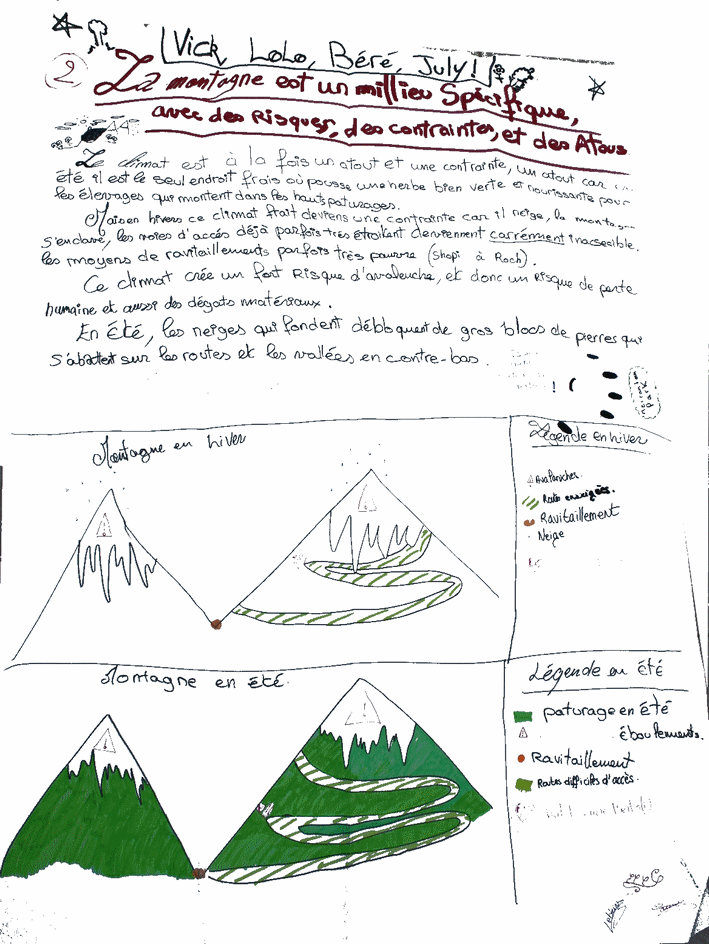 Vick, LoLo, Béré, July!
2 La montagne est un millieu Spécifique,
avec des Risques, des contraintes, et des Atous
Le climat est à la fois un atout et une contrainte, un atout car
été il est le seul endroit frais où pousse une herbe bien verte et nourissante pour
les élevages qui montent dans les hauts paturages.
Mais en hivers ce climat deviens une contrainte car il neige, la
s'enclave, les voies d'accés déjà parfois très deviennent carrément inaccesible.
les moyens de ravitaillements parfois très pauvre (Shopi à Roch).
Ce climat crée un fort Risque d'avalenche, et donc un Risque de perte
humaine et aussi des dégats matériaux.
En Été, les neiges qui fondent débloquent de gros blocs de pierres qui
s'abattent sur les routes et les vallées en contre-bas.
Montagne en hiver
Légende en hiver
Avalanches.
Routes enneigées.
Ravitaillement
Neige
Montagne en été.
Légende en été
paturage en été
éboulements.
Ravitaillement
Routes difficiles d'accès.